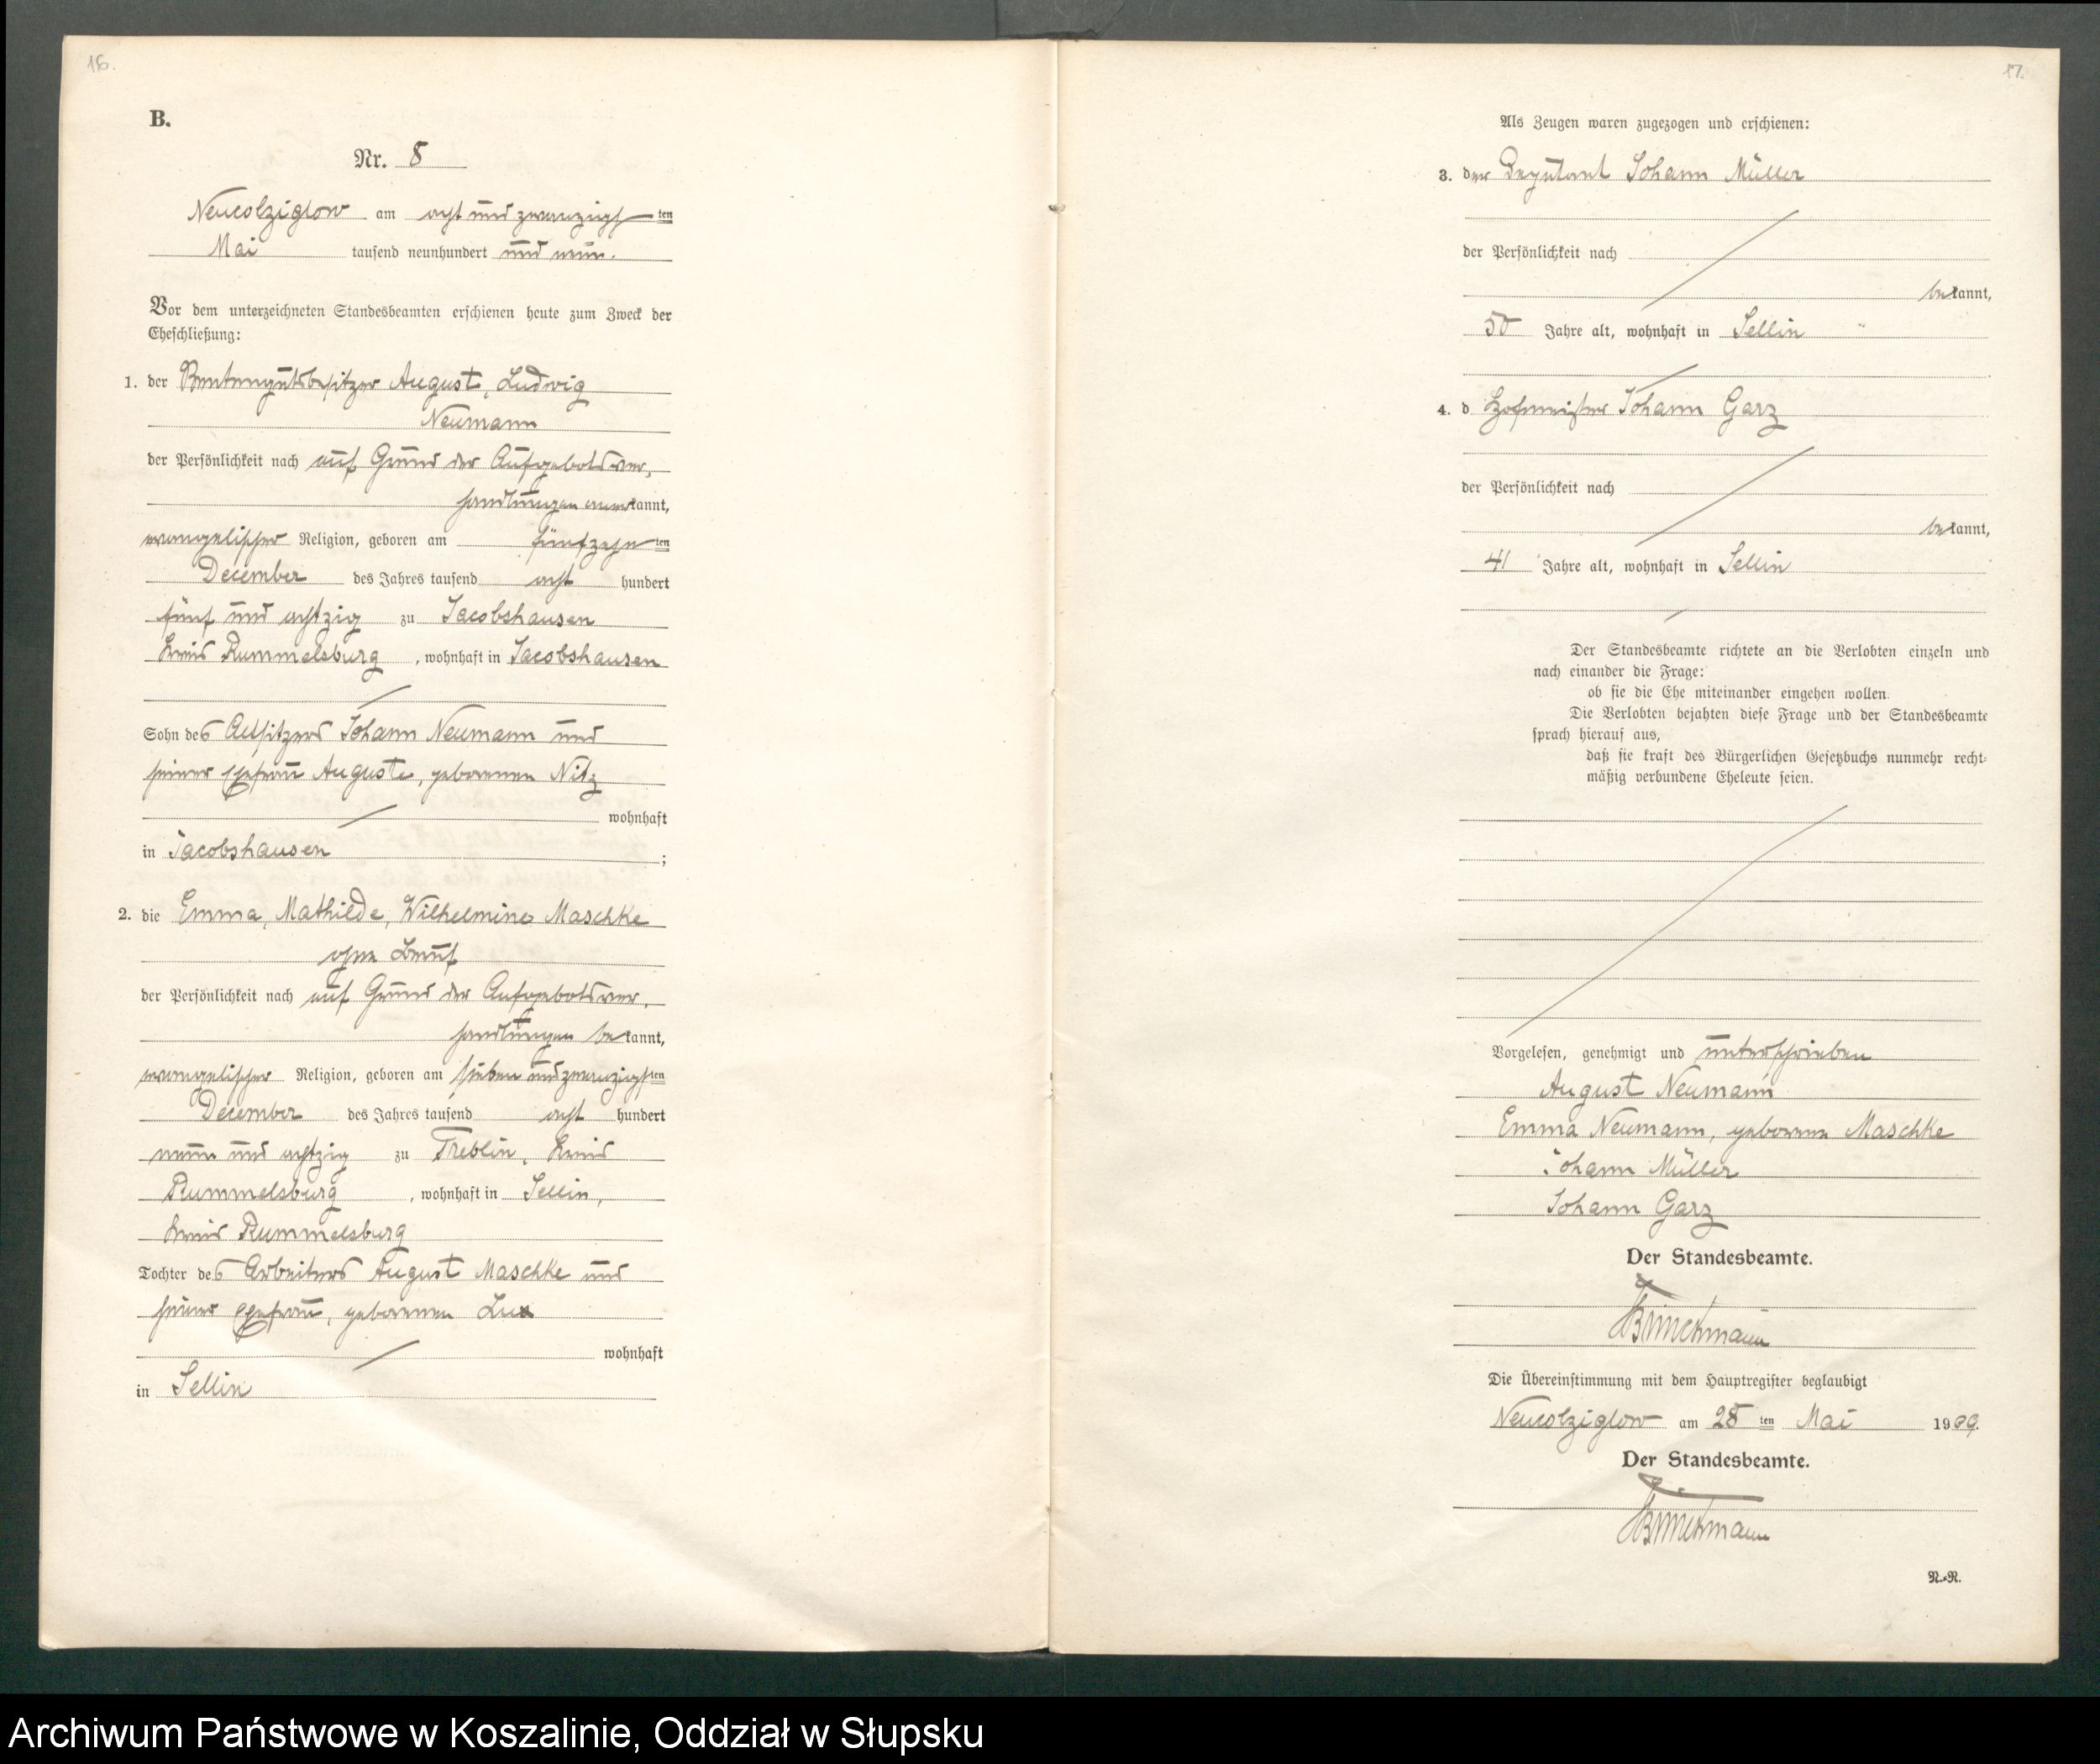 16.
B.
Nr. 8
Neucolziglow am acht und zwanzigsten
Mai tausend neunhundert und neun.
Vor dem unterzeichneten Standesbeamten erschienen heute zum Zweck der
Eheschließung:
1. der Rentengutsbesitzer August, Ludwig
Neumann
der Persönlichkeit nach auf Grund der Aufgebotsver,
handlungen anerkannt,
evangelischer Religion, geboren am fünfzehnten
December des Jahres tausend acht hundert
fünf und achtzig zu Jacobshausen
Kreis Rummelsburg, wohnhaft in Jacobshausen
Sohn des Altsitzers Johann Neumann und
seiner Ehefrau Auguste, geborenen Nitz
wohnhaft
in Jacobshausen;
2. die Emma, Mathilde, Wilhelmine Maschke
ohne Beruf
der Persönlichkeit nach auf Grund der Aufgebotsver,
handlungen bekannt,
evangelischer Religion, geboren am sieben und zwanzigsten
December des Jahres tausend acht hundert
neun und achtzig zu Treblin, Kreis
Rummelsburg, wohnhaft in Sellin,
Kreis Rummelsburg
Tochter des Arbeiters August Maschke und
seiner Ehefrau, geborenen Lux
wohnhaft
in Sellin
17.
Als Zeugen waren zugezogen und erschienen:
3. der Deputant Johann Müller
der Persönlichkeit nach
bekannt,
50 Jahre alt, wohnhaft in Sellin
4. d Hofmeister Johann Garz
der Persönlichkeit nach
bekannt,
41 Jahre alt, wohnhaft in Sellin
Der Standesbeamte richtete an die Verlobten einzeln und
nach einander die Frage:
ob sie die Ehe miteinander eingehen wollen.
Die Verlobten bejahten diese Frage und der Standesbeamte
sprach hierauf aus,
daß sie kraft des Bürgerlichen Gesetzbuchs nunmehr recht-
mäßig verbundene Eheleute seien.
Vorgelesen, genehmigt und unterschrieben
August Neumann
Emma Neumann, geborene Maschke
Johann Müller
Johann Garz
Der Standesbeamte.
Brinckmann
Die Übereinstimmung mit dem Hauptregister beglaubigt
Neucolziglow am 28ten Mai 1909.
Der Standesbeamte.
Brinckmann
N.-R.
Archiwum Państwowe w Koszalinie, Oddział w Słupsku